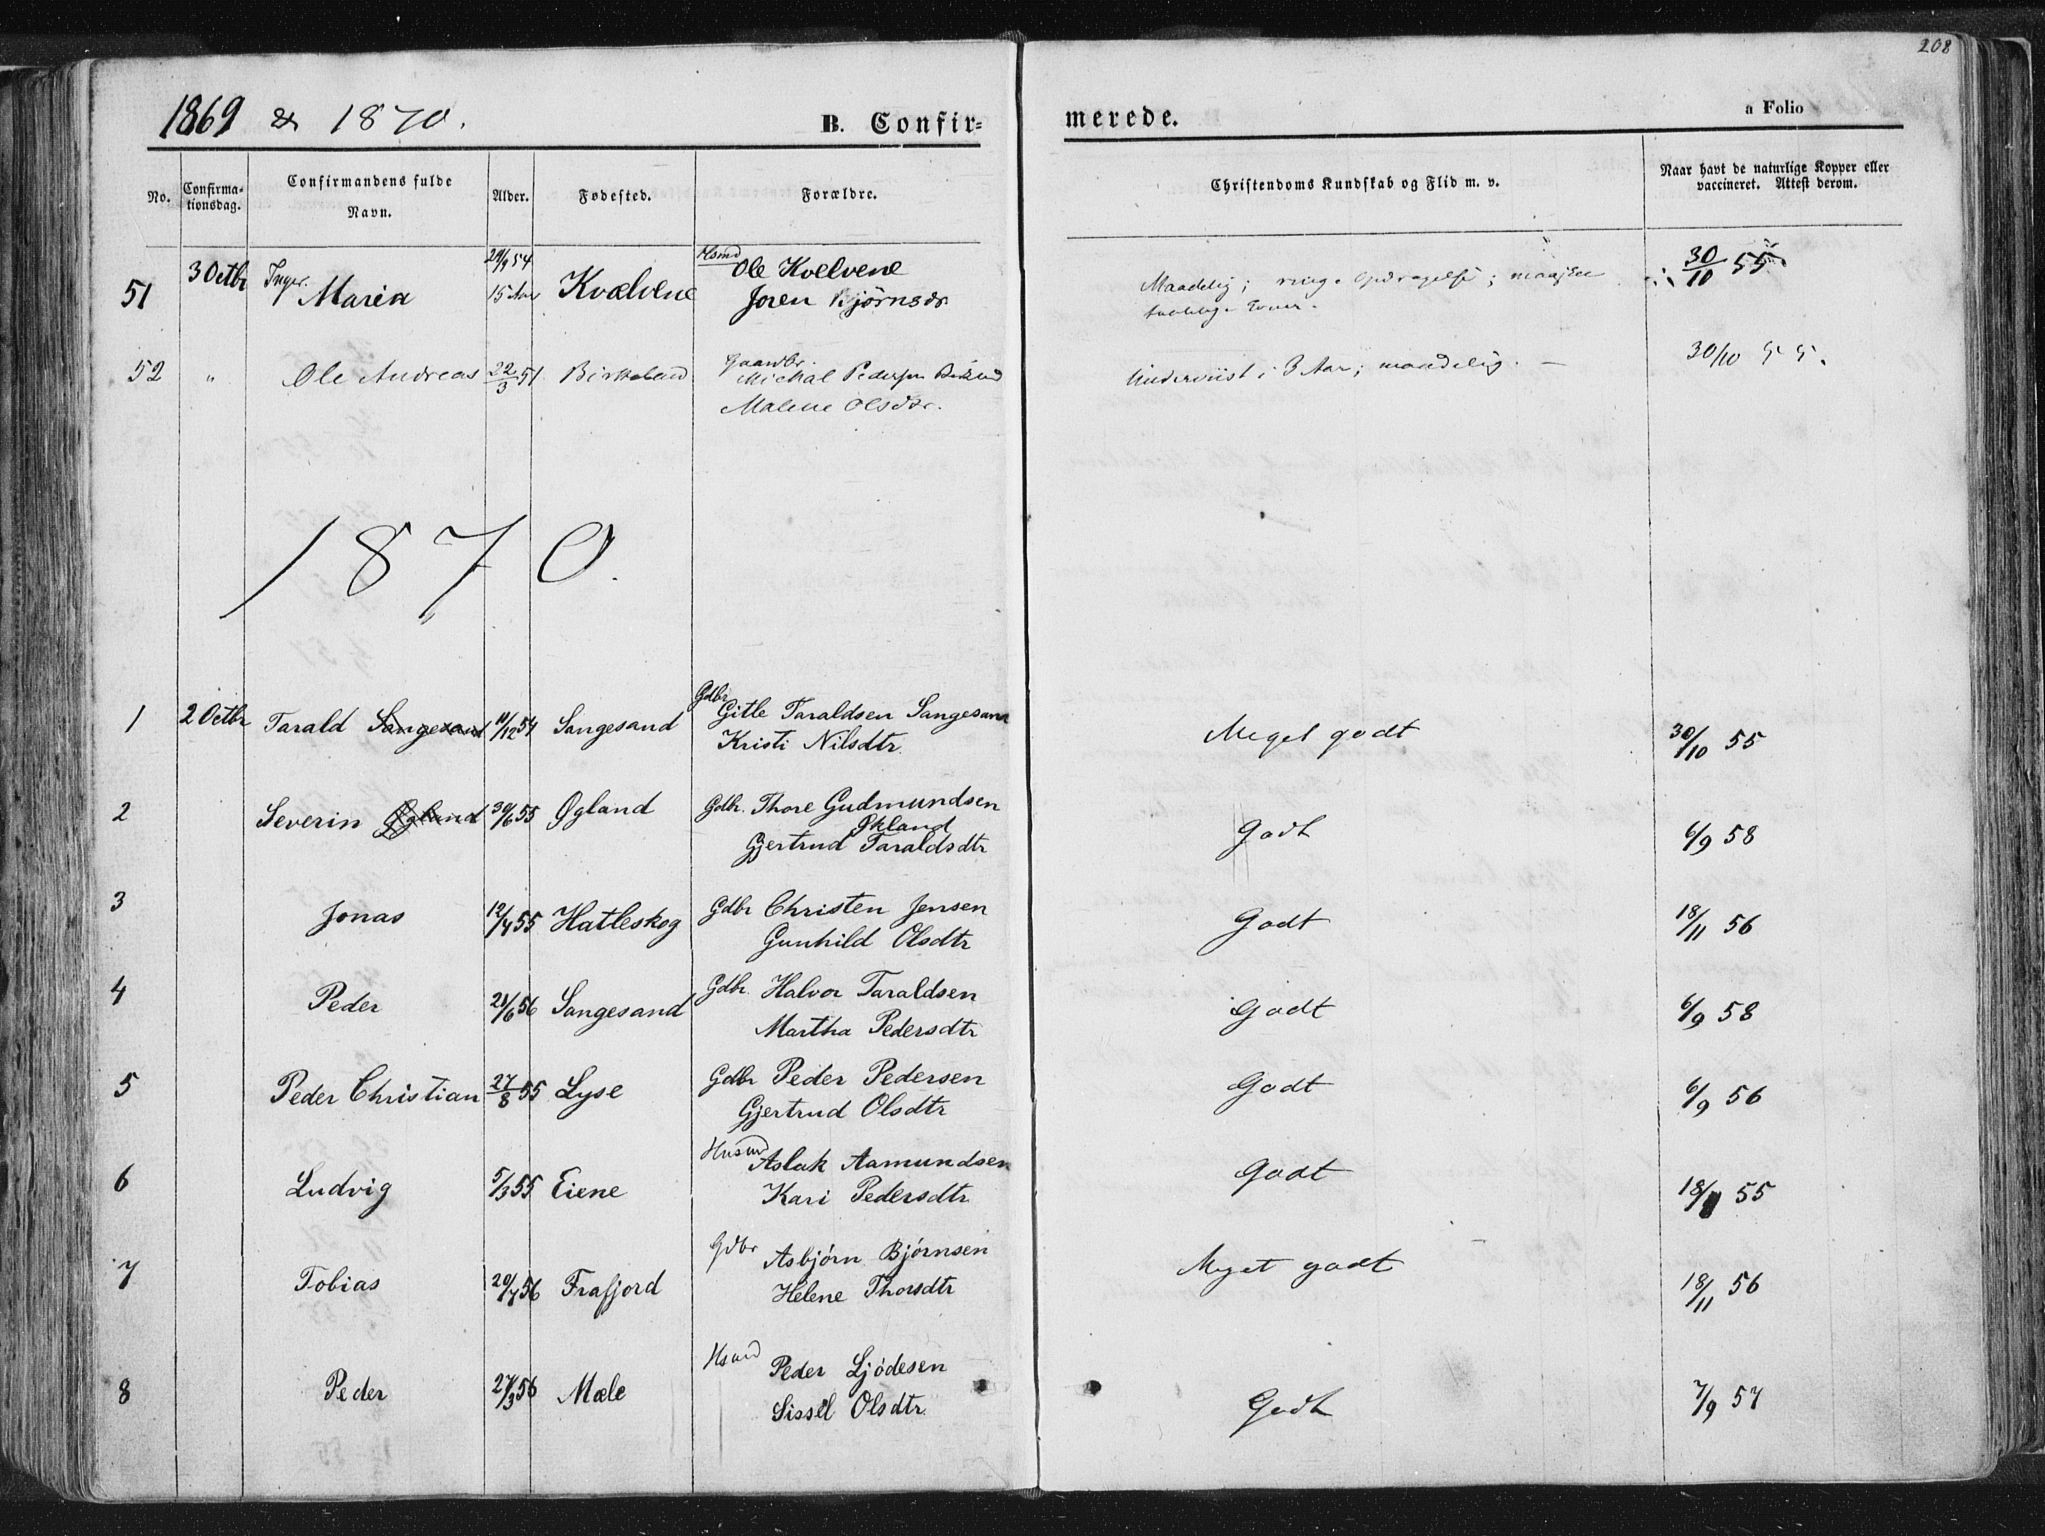 208
1869 & 1870.
B. Confir=
merede.
a Folio
No.
Confirma-
tionsdag.
Confirmandens fulde
Navn.
Alder.
Fødested.
Forældre.
Christendoms Kundskab og Flid m. v.
Naar havt de naturlige Kopper eller
vaccineret. Attest derom.
51 3 Octbr Inger Maria 29/9 54 15 Aar Kvælvene Hsmd Ole Kvelvene
Joren Bjørnsdr.
Maadelig; ringe Opdragelse;
30/10 55
52 " Ole Andreas 22/3 51 Birkeland Gaardbr. Michal Pedersen
Malene Olsdtr.
Underviist i 3 Aar; maadelig. —
30/10 55.
1870.
1 2 Octbr Tarald Sangesand 11/12 54 Sangesand Gdbr Gitle Taraldsen Sangesand
Kristi Nilsdtr.
Meget godt 30/10 55
2 Severin Øgland 30/6 55 Øgland Gdbr. Thore Gudmundsen
Økland
Gjertrud Taraldsdtr
Godt 6/9 58
3 Jonas 12/4 55 Hatleskog Gdbr Christen Jensen
Gunhild Olsdtr
Godt 18/11 56
4 Peder 21/6 56 Sangesand Gdbr. Halvor Taraldsen
Martha Pedersdtr
Godt 6/9 58
5 Peder Christian 27/8 55 Lyse Gdbr Peder Pedersen
Gjertrud Olsdtr
Godt 6/9 56
6 Ludvig 5/3 55 Eiene Husmd Aslak Aamundsen
Kari Pedersdtr
Godt 18/11 55
7 Tobias 20/4 56 Frafjord Gdbr Asbjørn Bjørnsen
Helene Thorsdtr
Meget godt 18/11 56
8 Peder 27/3 56 Mæle Hsmd Peder Ljødesen
Sissel Olsdtr
Godt 7/9 57